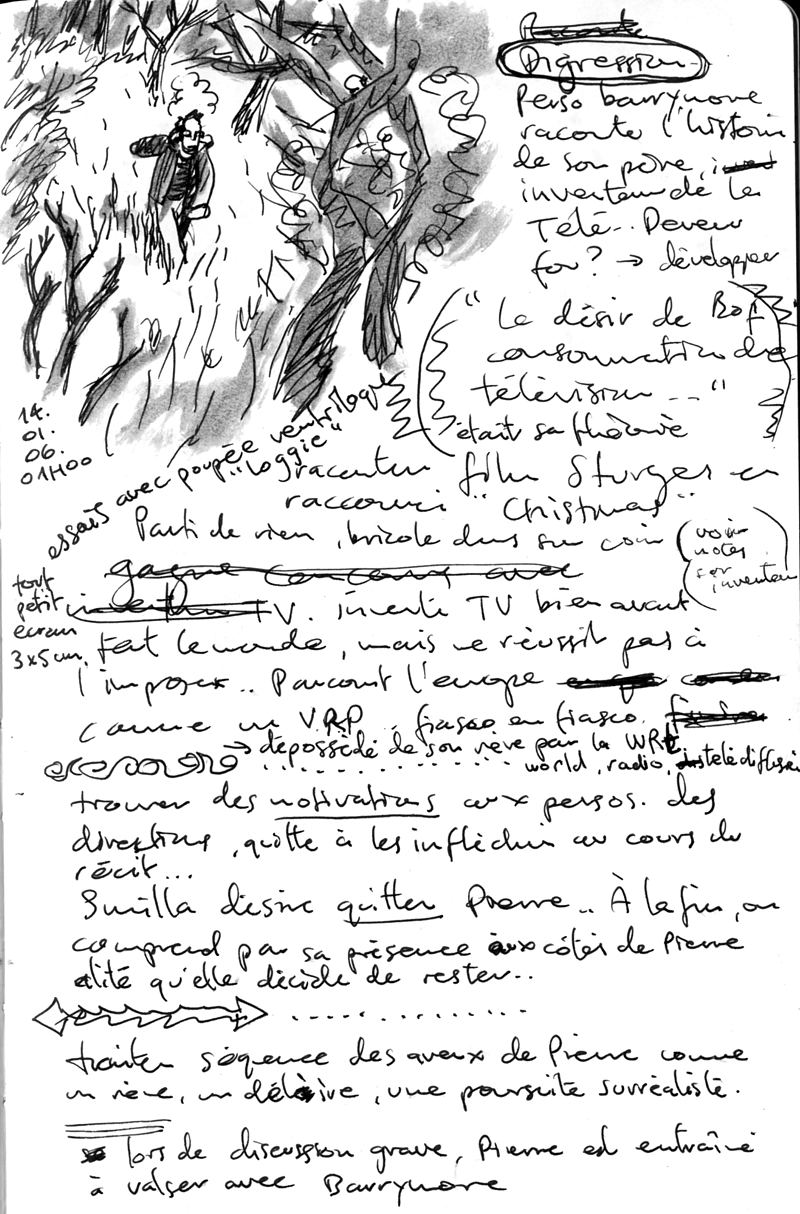 Digression
Perso barrymore
raconte l'histoire
de son père,
inventeur de la
Télé.. Devenu
fou? → développer
"Le désir de
consommation de
télévision..."
était sa théorie
14.
01.
06.
01H00
essais avec poupée ventriloque
"Loggie"
raconter film Sturges en
raccourci "Christmas"
Parti de rien, bricole dans son coin
(voir
notes
sur
inventeur)
gagne concours avec
tout
petit
écran
3x5 cm.
TV. invente TV bien avant
tout le monde, mais ne réussit pas à
l'imposer.. Parcourt l'europe
comme un VRP. fiasco en fiasco.
→ dépossédé de son rêve par la WRt
world, radio, télédiffusion
trouver des motivations aux persos. des
directions, quitte à les infléchir au cours du
récit...
Smilla désire quitter Pierre.. À la fin, on
comprend par sa présence aux côtés de Pierre
alité qu'elle décide de rester..
traiter séquence des aveux de Pierre comme
un rêve, un délire, une poursuite surréaliste.
lors de discussion grave, Pierre est entraîné
à valser avec Barrymore